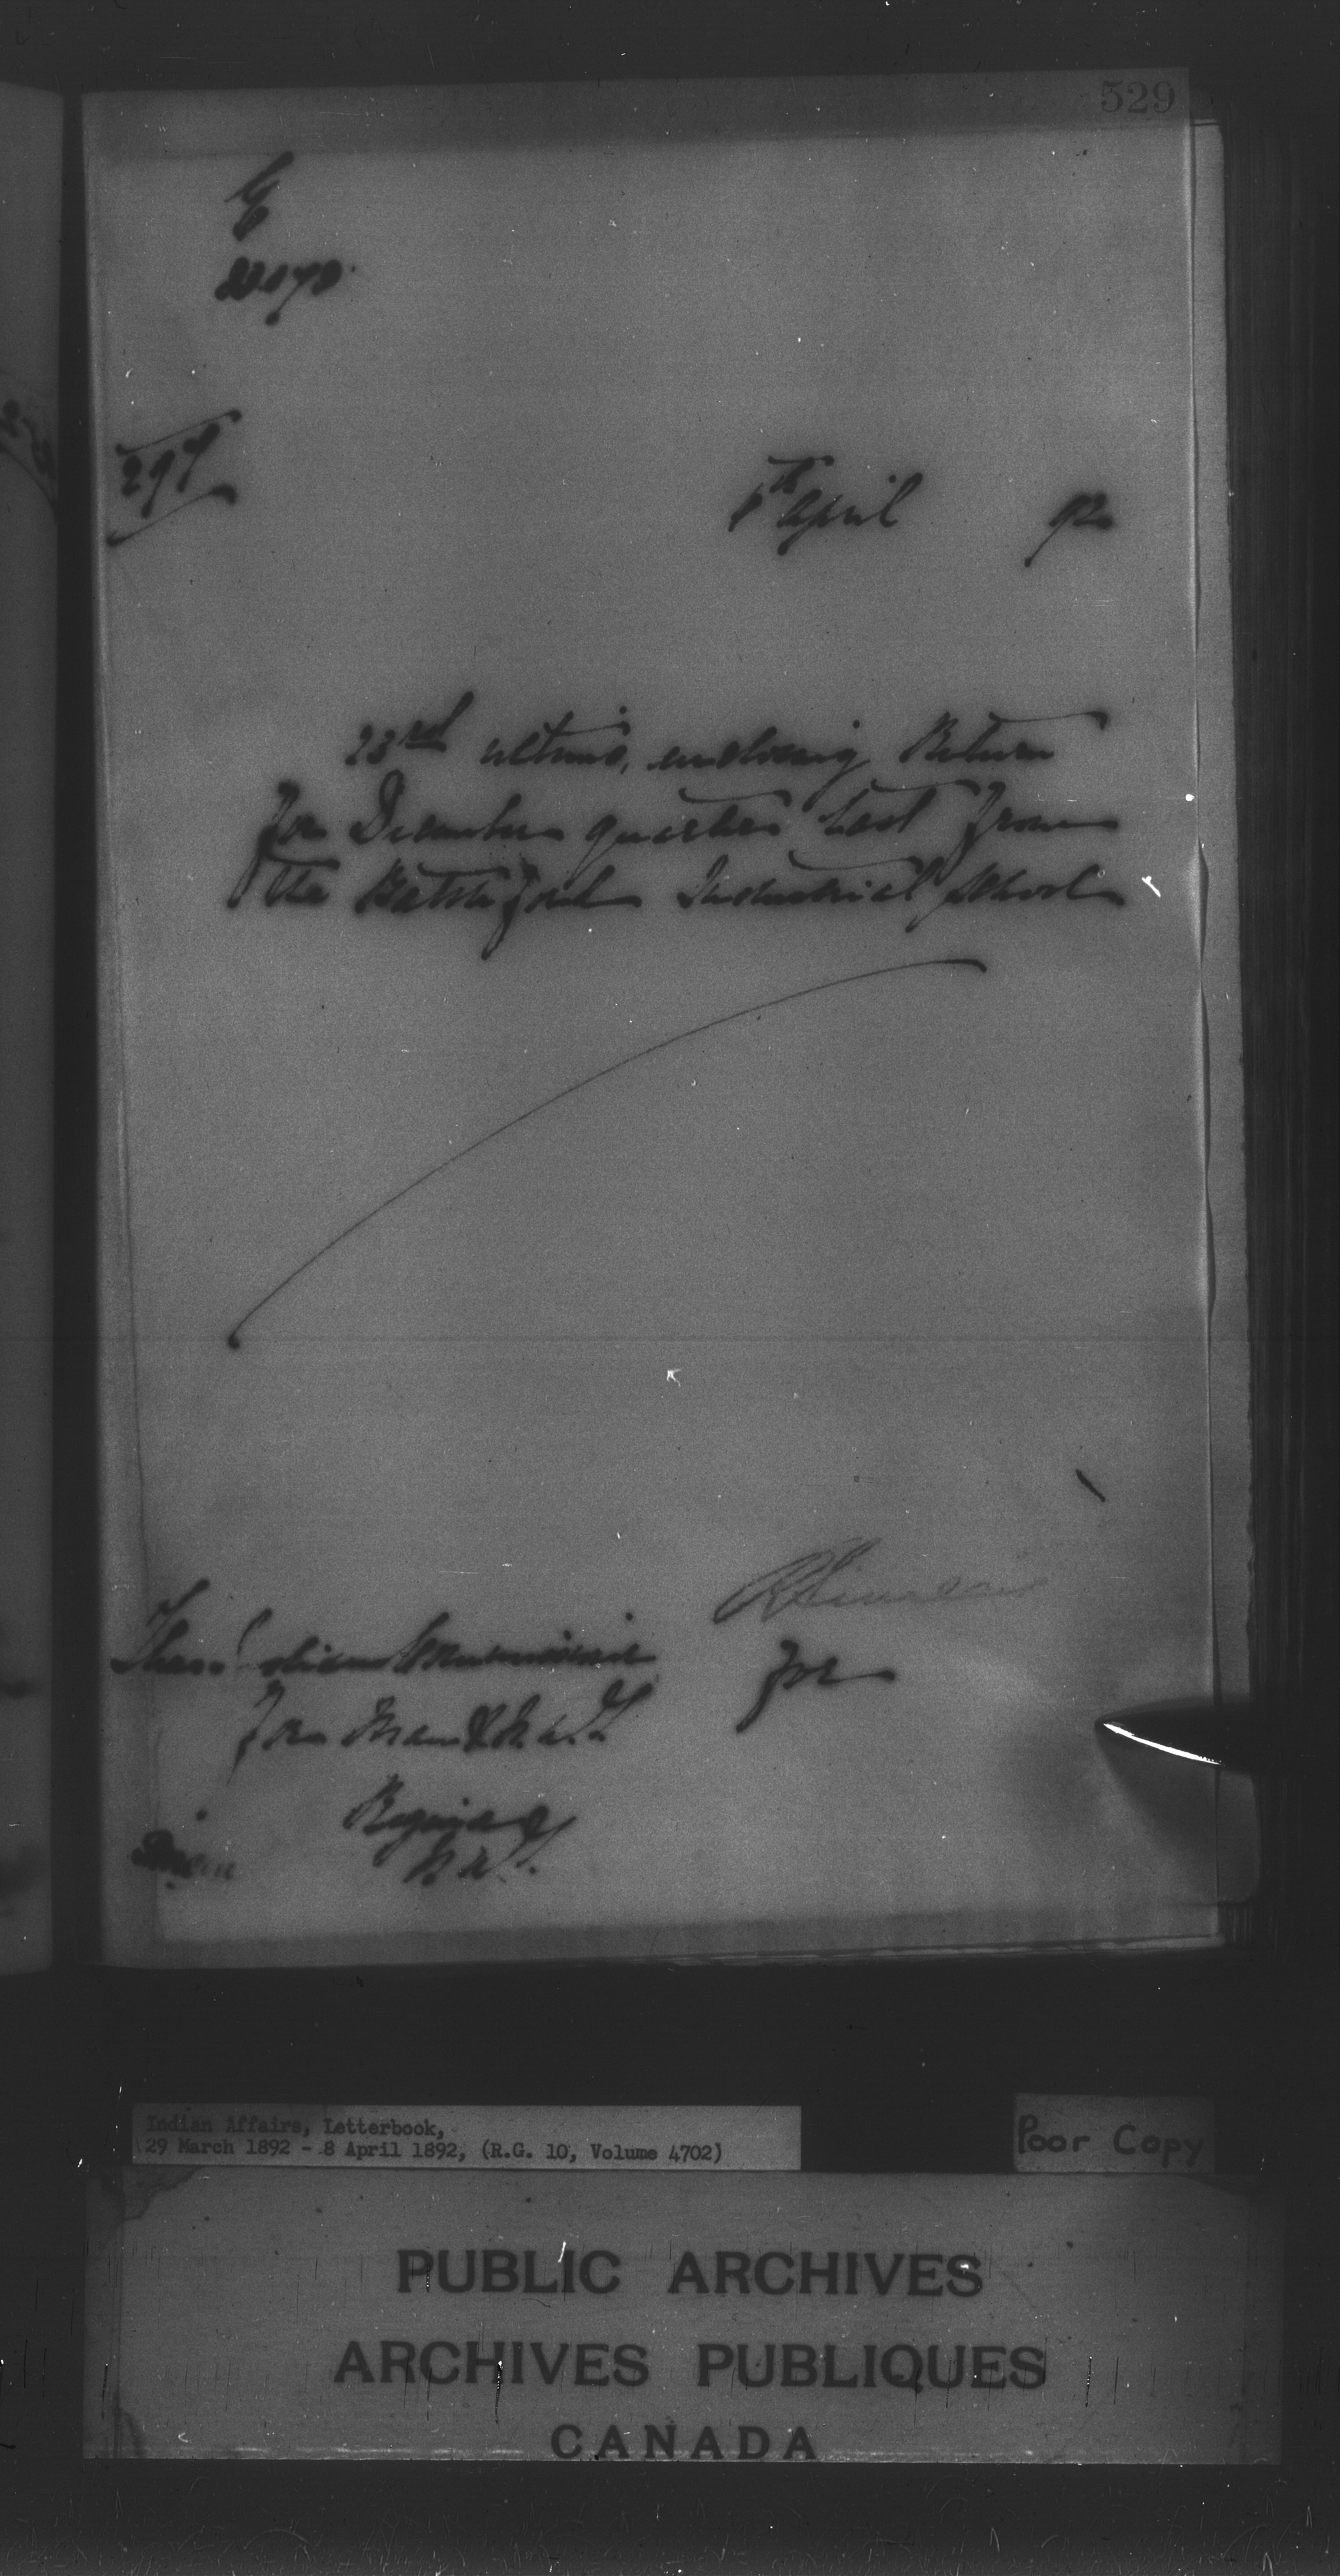 529
297
April 92
23rd ultimo, enclosing Return
for December quarter last from
the Battleford Industrial School
The Indian Commissioner
for Man & N.W.T.
for
Regina
N.W.T.
Indian Affairs, Letterbook,
29 March 1892 - 8 April 1892, (R.G. 10, Volume 4702)
Poor Copy
PUBLIC ARCHIVES
ARCHIVES PUBLIQUES
CANADA